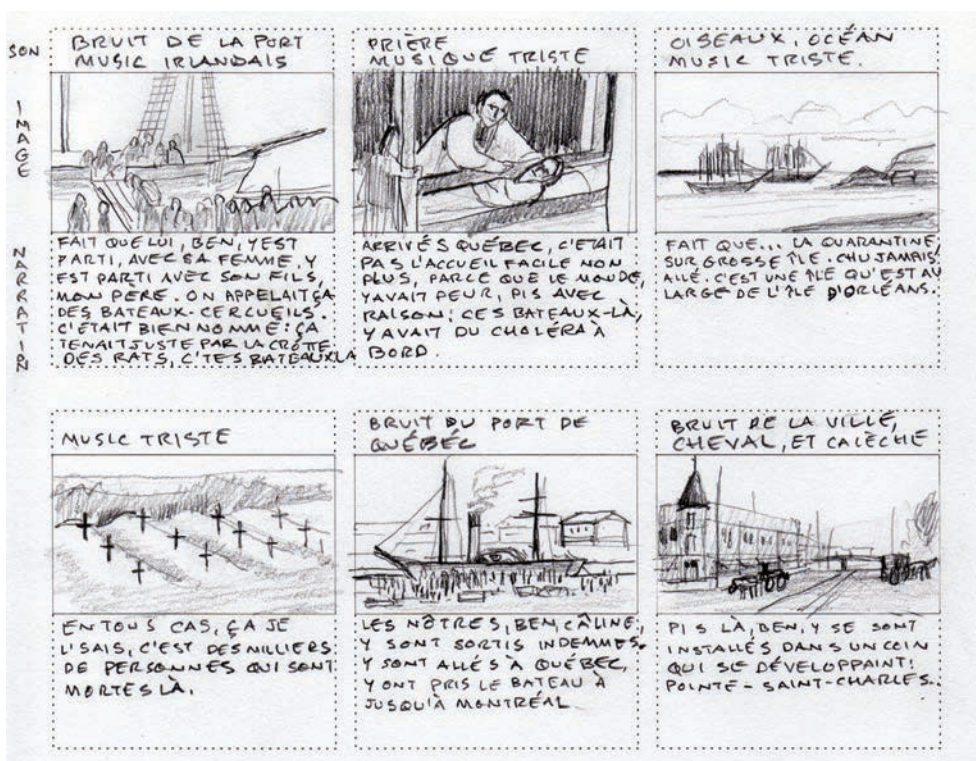 SON
BRUIT DE LA PORT
MUSIC IRLANDAIS
IMAGE
NARRATION
FAIT QUE LUI, BEN, Y EST
PARTI, AVEC SA FEMME, Y
EST PARTI AVEC SON FILS,
MON PERE. ON APPELAIT ÇA
DES BATEAUX-CERCUEILS.
C'ÉTAIT BIEN NOMMÉ: ÇA
TENAIT JUSTE PAR LA CROTTE
DES RATS, C'TES BATEAUX LA
PRIÈRE
MUSIQUE TRISTE
ARRIVÉS QUÉBEC, C'ETAIT
PAS L'ACCUEIL FACILE NON
PLUS, PARCE QUE LE MONDE,
Y AVAIT PEUR, PIS AVEC
RAISON: CES BATEAUX-LÀ,
Y AVAIT DU CHOLÉRA À
BORD.
OISEAUX, OCÉAN
MUSIC TRISTE.
FAIT QUE... LA QUARANTINE,
SUR GROSSE ÎLE. CHU JAMAIS
ALLÉ. C'EST UNE ÎLE QU'EST AU
LARGE DE L'ÎLE D'ORLÉANS.
MUSIC TRISTE
EN TOUS CAS, ÇA JE
L'SAIS, C'EST DES MILLIERS
DE PERSONNES QUI SONT
MORTES LÀ.
BRUIT DU PORT DE
QUÉBEC
LES NÔTRES, BEN, CÂLINE,
Y SONT SORTIS INDEMMES.
Y SONT ALLÉS À QUÉBEC,
Y ONT PRIS LE BATEAU À
JUSQU'À MONTRÉAL
BRUIT DE LA VILLE,
CHEVAL, ET CALÈCHE
PIS LÀ, BEN, Y SE SONT
INSTALLÉS DANS UN COIN
QUI SE DÉVELOPPAINT:
POINTE-SAINT-CHARLES.